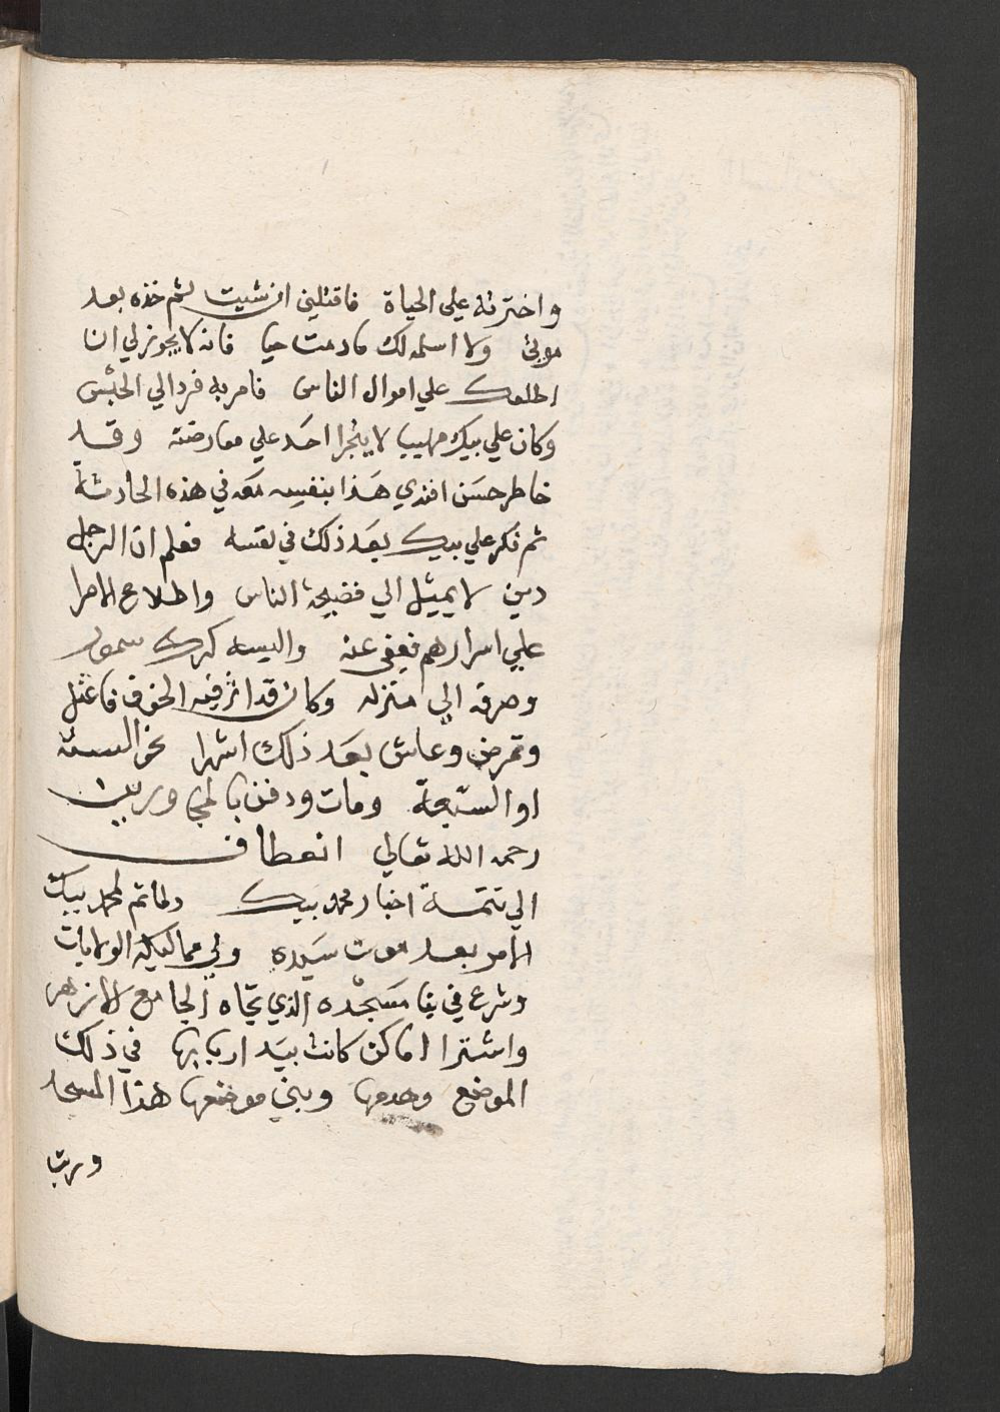 واخترته علي الحياة فاقتلني ان شيت ثم خذه بعد
موتي ولا اسلمه لك مادمت حيا فانه لا يجوز لي ان
اطلعك علي اموال الناس فامر به فرد الي الحبس
وكان علي بيك مهيبا لا يتجرا احد علي معارضته وقد
خاطر حسن افندي هذا بنفسه معه في هذه الحادثة
ثم فكر علي بيك بعد ذلك في نفسه فعلم ان الرجل
دين لا يميل الي فضيحة الناس واطلاع الامرا
علي اسرارهم فعفي عنه والبسه كرك سمور
وصرفه الي منزله وكان قد اثر فيه الخوف فاعتل
وتمرض وعاش بعد ذلك اشهرا نحو الستة
او السبعة ومات ودفن بالمجاورين
رحمه الله تعالي انعطاف
الي تتمة اخبار محمد بيك ولما تم لمحمد بيك
الامر بعد موت سيده ولي مماليكه الولايات
وشرع في بنا مسجده الذي تجاه الجامع الازهر
واشترا اماكن كانت بيد اربابها في ذلك
الموضع وهدمها وبني موضعها هذا المسجد
ورتب